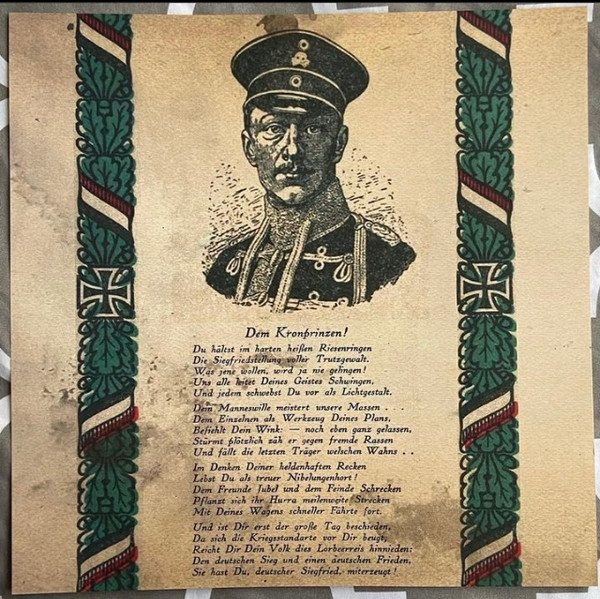 Dem Kronprinzen!
Du hältst im harten heißen Riesenringen
Die Siegfriedstellung voller Trutzgewalt.
Was jene wollen, wird ja nie gelingen!
Uns alle leitet Deines Geistes Schwingen,
Und jedem schwebst Du vor als Lichtgestalt.
Dein Manneswille meistert unsere Massen . . .
Dem Einzelnen als Werkzeug Deines Plans,
Befiehlt Dein Wink: — noch eben ganz gelassen,
Stürmt plötzlich zäh er gegen fremde Rassen
Und fällt die letzten Träger welschen Wahns . .
Im Denken Deiner heldenhaften Recken
Lebst Du als treuer Nibelungenhort!
Dem Freunde Jubel und dem Feinde Schrecken
Pflanzt sich ihr Hurra meilenweite Strecken
Mit Deines Wagens schneller Fährte fort.
Und ist Dir erst der große Tag beschieden,
Da sich die Kriegsstandarte vor Dir beugt,
Reicht Dir Dein Volk dies Lorbeerreis hinnieden:
Den deutschen Sieg und einen deutschen Frieden,
Sie hast Du, deutscher Siegfried, miterzeugt!